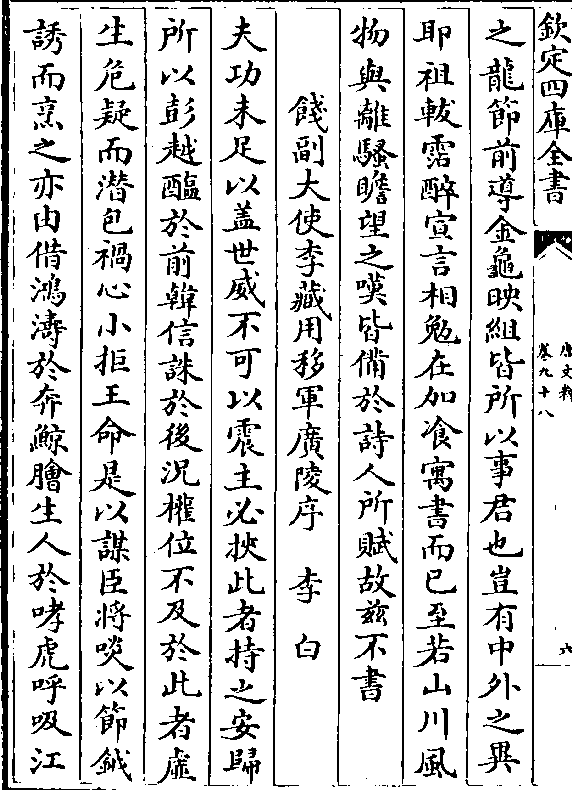 欽定四庫全書
唐文粹
卷九十八
六
之龍節前導金龜映組皆所以事君也豈有中外之異
耶祖軷霑醉宣言相勉在加飡寓書而已至若山川風
物與離騷瞻望之嘆皆備於詩人所賦故兹不書
餞副大使李藏用移軍廣陵序　李白
夫功未足以蓋世威不可以震主必挾此者持之安歸
所以彭越醢於前韓信誅於後況權位不及於此者虛
生危疑而潛包禍心小拒王命是以謀臣將啖以節鉞
誘而烹之亦由借鴻濤於奔鯨膾生人於哮虎呼吸江